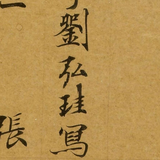 劉弘珪寫
張